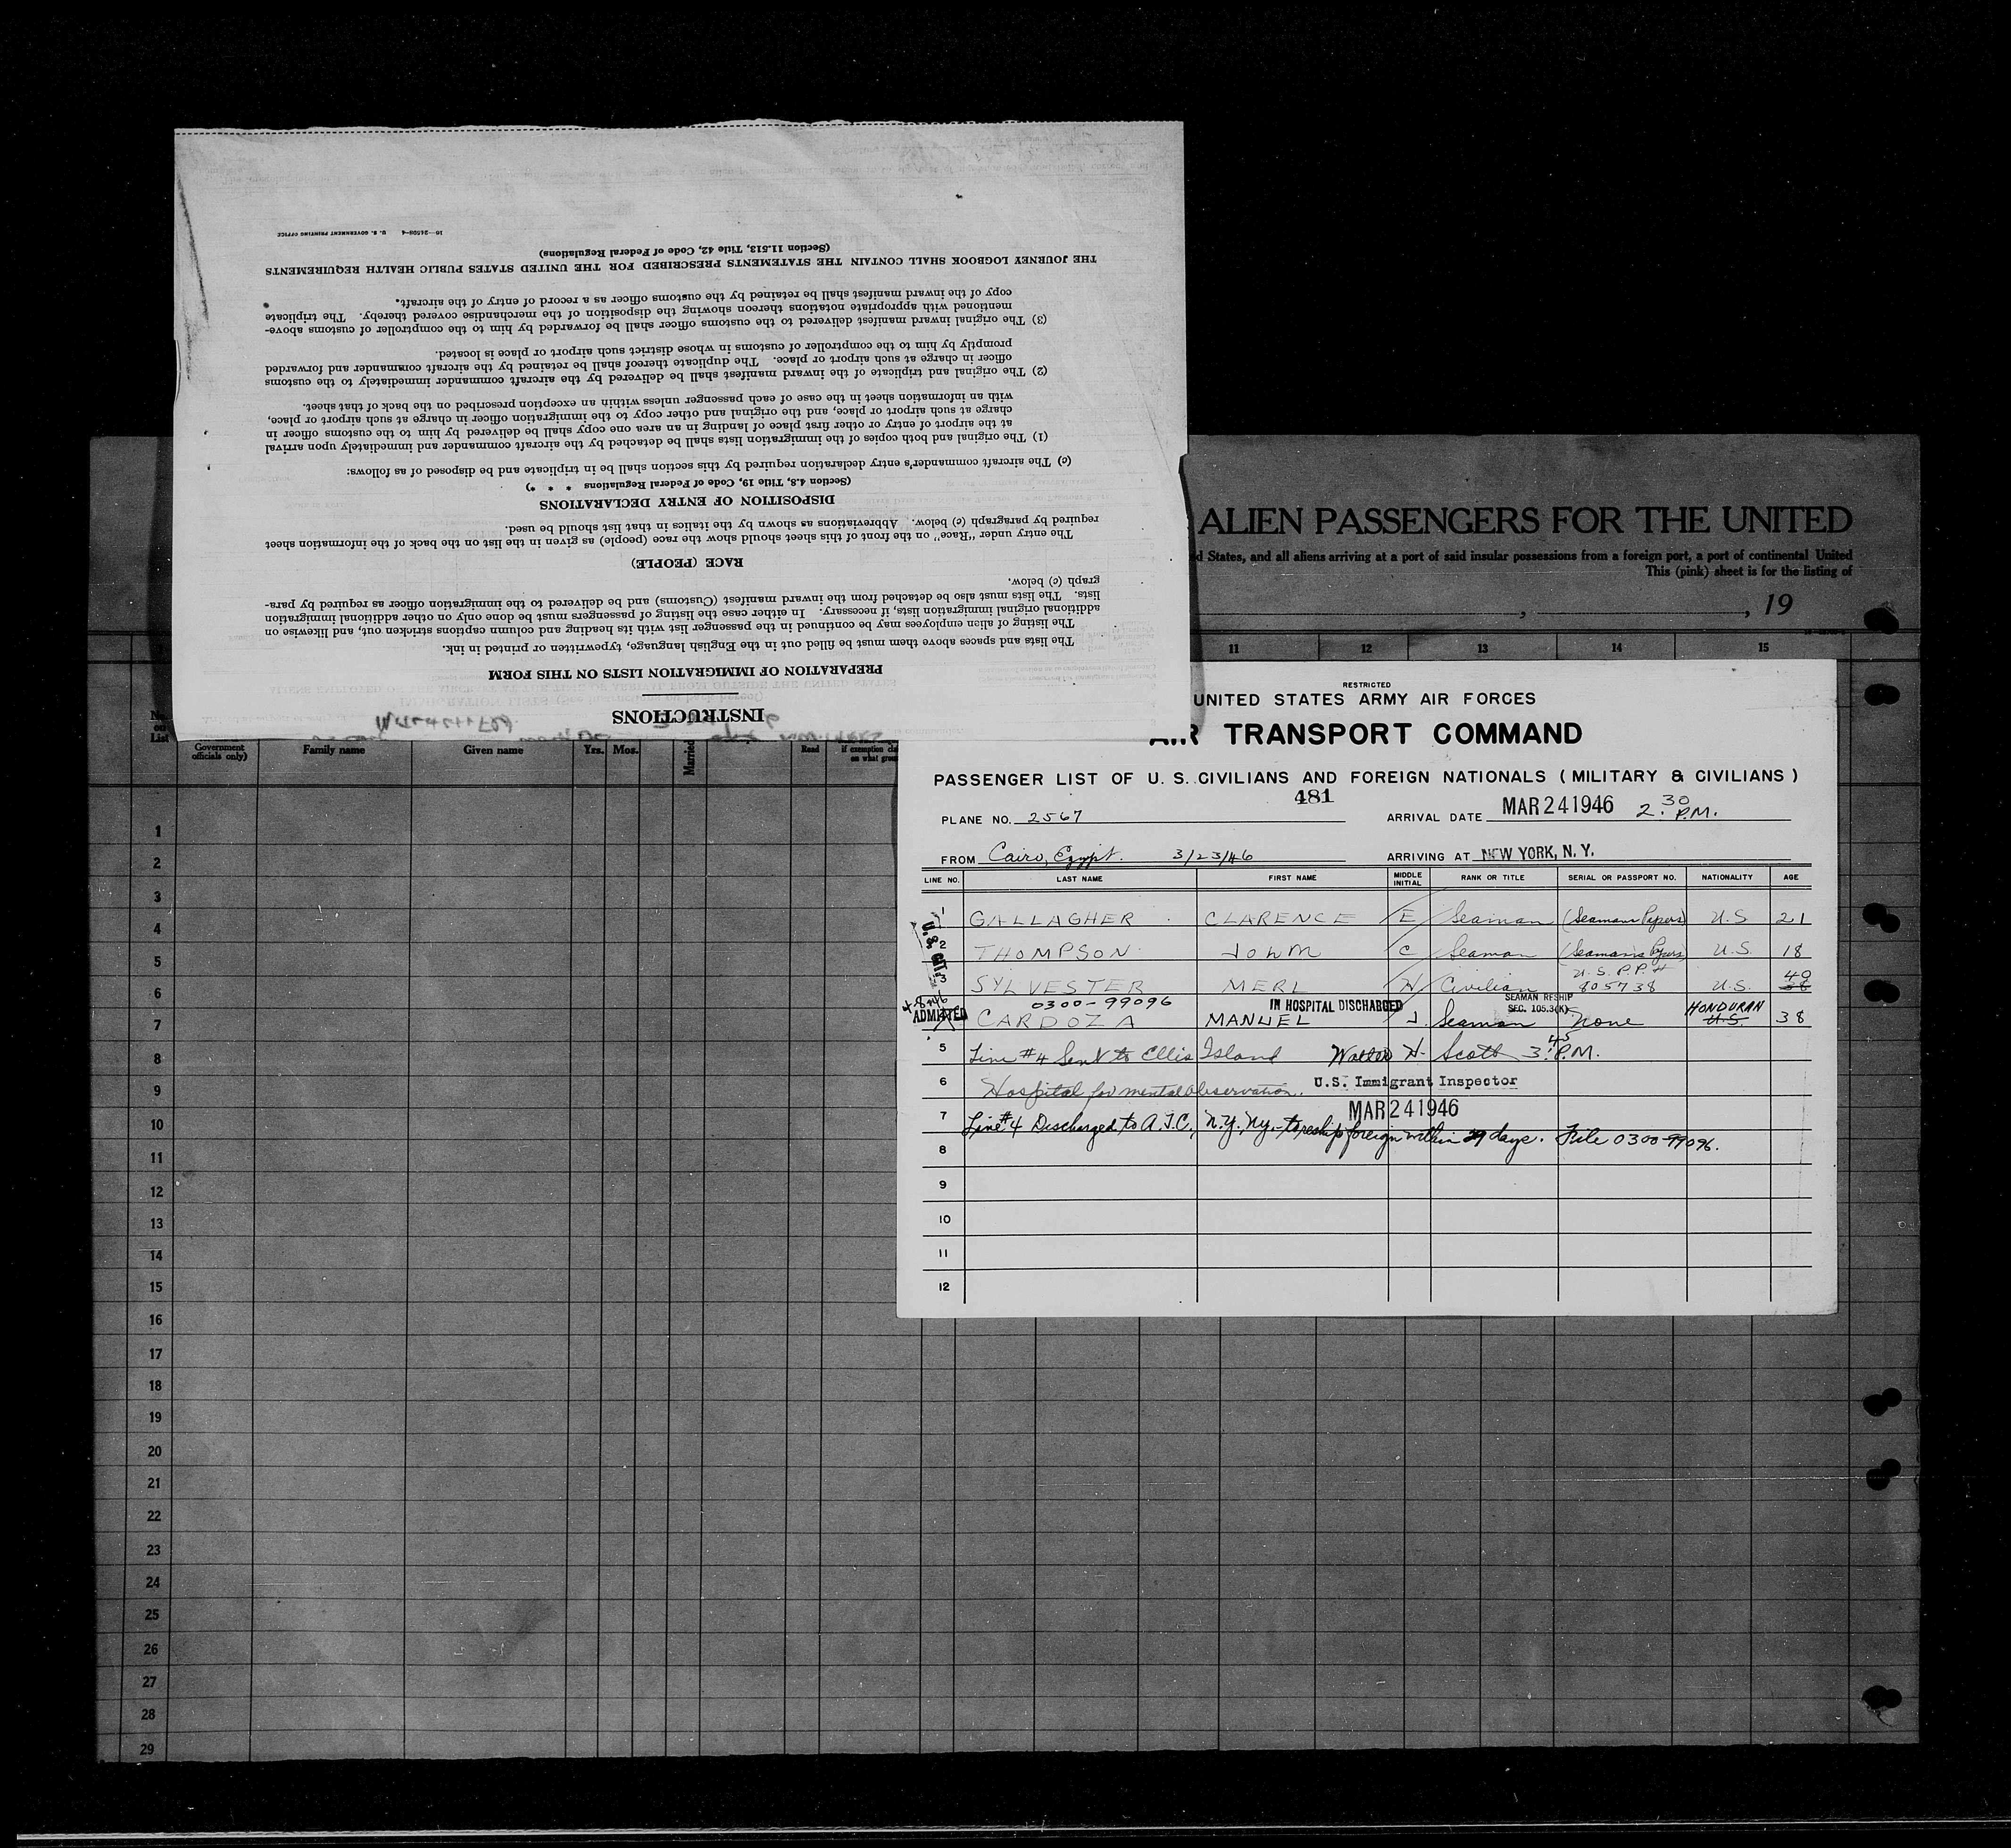 INSTRUCTIONS
PREPARATION OF IMMIGRATION LISTS ON THIS FORM
The lists and spaces above them must be filled out in the English language, typewritten or printed in ink.
The listing of alien employees may be continued in the passenger list with its heading and column captions stricken out, and likewise on
additional original immigration lists, if necessary. In either case the listing of passengers must be done only on other additional immigration
lists. The lists must also be detached from the inward manifest (Customs) and be delivered to the immigration officer as required by para-
graph (c) below.
RACE (PEOPLE)
The entry under "Race" on the front of this sheet should show the race (people) as given in the list on the back of the information sheet
required by paragraph (c) below. Abbreviations as shown by the italics in that list should be used.
DISPOSITION OF ENTRY DECLARATIONS
(Section 4.8, Title 19, Code of Federal Regulations * * *)
(c) The aircraft commander's entry declaration required by this section shall be in triplicate and be disposed of as follows:
(1) The original and both copies of the immigration lists shall be detached by the aircraft commander and immediately upon arrival
at the airport of entry or other first place of landing in an area one copy shall be delivered by him to the customs officer in
charge at such airport or place, and the original and other copy to the immigration officer in charge at such airport or place,
with an information sheet in the case of each passenger unless within an exception prescribed on the back of that sheet.
(2) The original and triplicate of the inward manifest shall be delivered by the aircraft commander immediately to the customs
officer in charge at such airport or place. The duplicate thereof shall be retained by the aircraft commander and forwarded
promptly by him to the comptroller of customs in whose district such airport or place is located.
(3) The original inward manifest delivered to the customs officer shall be forwarded by him to the comptroller of customs above-
mentioned with appropriate notations thereon showing the disposition of the merchandise covered thereby. The triplicate
copy of the inward manifest shall be retained by the customs officer as a record of entry of the aircraft.
THE JOURNEY LOGBOOK SHALL CONTAIN THE STATEMENTS PRESCRIBED FOR THE UNITED STATES PUBLIC HEALTH REQUIREMENTS
(Section 11.513, Title 42, Code of Federal Regulations)
16—24508-4 U. S. GOVERNMENT PRINTING OFFICE
ALIEN PASSENGERS FOR THE UNITED
d States, and all aliens arriving at a port of said insular possessions from a foreign port, a port of continental United
This (pink) sheet is for the listing of
, , 19
11 12 13 14 15
No. on List
Government officials only) Family name Given name Yrs. Mos. Married Read
1
2
3
4
5
6
7
8
9
10
11
12
13
14
15
16
17
18
19
20
21
22
23
24
25
26
27
28
29
RESTRICTED
UNITED STATES ARMY AIR FORCES
AIR TRANSPORT COMMAND
PASSENGER LIST OF U. S. CIVILIANS AND FOREIGN NATIONALS (MILITARY & CIVILIANS)
481
PLANE NO. 2567 ARRIVAL DATE MAR 24 1946 2:30 P.M.
FROM Cairo, Egypt. 3/23/46 ARRIVING AT NEW YORK, N. Y.
LINE NO. LAST NAME FIRST NAME MIDDLE INITIAL RANK OR TITLE SERIAL OR PASSPORT NO. NATIONALITY AGE
1 GALLAGHER CLARENCE E Seaman (Seamans Papers) U.S 21
2 THOMPSON JOHN C Seaman (Seamans Papers) U.S. 18
U.S. P.P. # 40
3 SYLVESTER MERL H Civilian 805738 U.S. 38
U.S. CIT.
0300-99096 IN HOSPITAL DISCHARGED SEAMAN RESHIP SEC. 105.3(K) HONDURAN
ADMITTED CARDOZA MANUEL J. Seaman None U.S. 38
5 Line #4 Sent to Ellis Island Walter H. Scott 3:45 P.M.
6 Hospital for mental observation. U.S. Immigrant Inspector
MAR 24 1946
7 Line #4 Discharged to A.T.C., N.Y. Ny. - to reship foreign within 29 days. File 0300-99096.
8
9
10
11
12